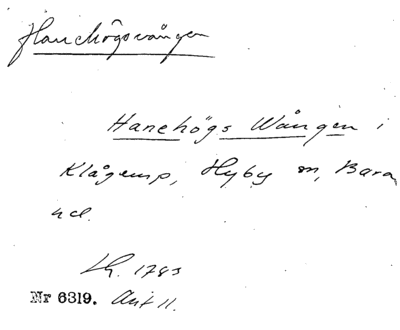 Hanehögsvången
Hanehögs Wången i
Klågerup, Hyby sn, Bara
hd.
Lh. 1785
Nr 6319. Akt 11.